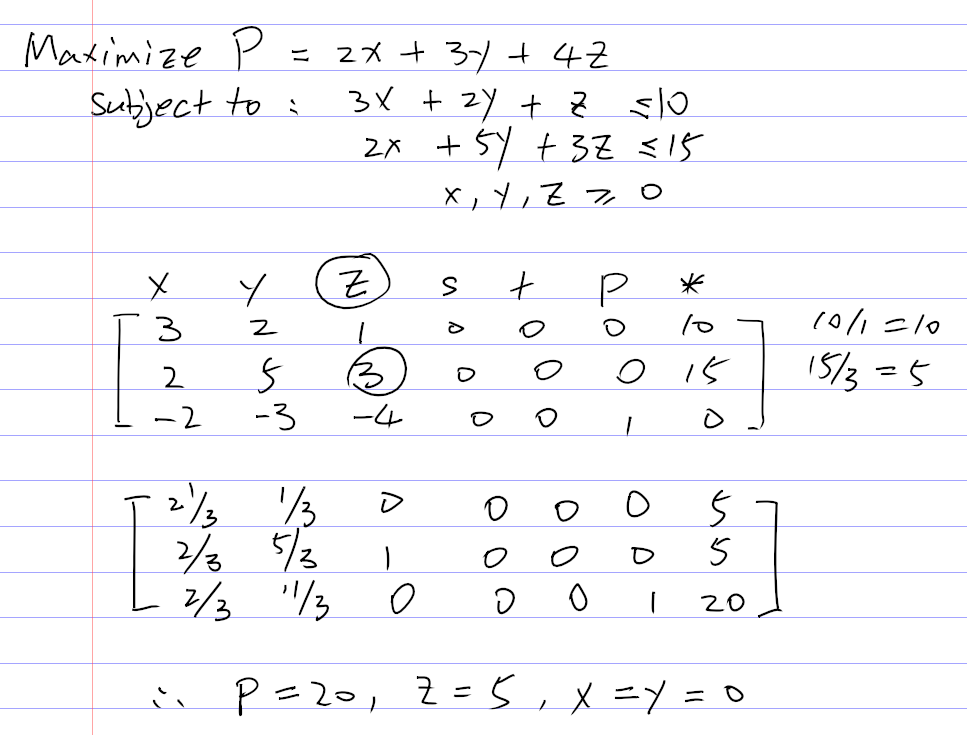 Maximize P = 2x + 3y + 4z
subject to : 3x + 2y + z ≤ 10
2x + 5y + 3z ≤ 15
x, y, z ≥ 0
x y z s t p *
3 2 1 0 0 0 10 10/1 = 10
2 5 3 0 0 0 15 15/3 = 5
-2 -3 -4 0 0 1 0
2 1/3 1/3 0 0 0 0 5
2/3 5/3 1 0 0 0 5
2/3 11/3 0 0 0 1 20
∴ P = 20, z = 5, x = y = 0